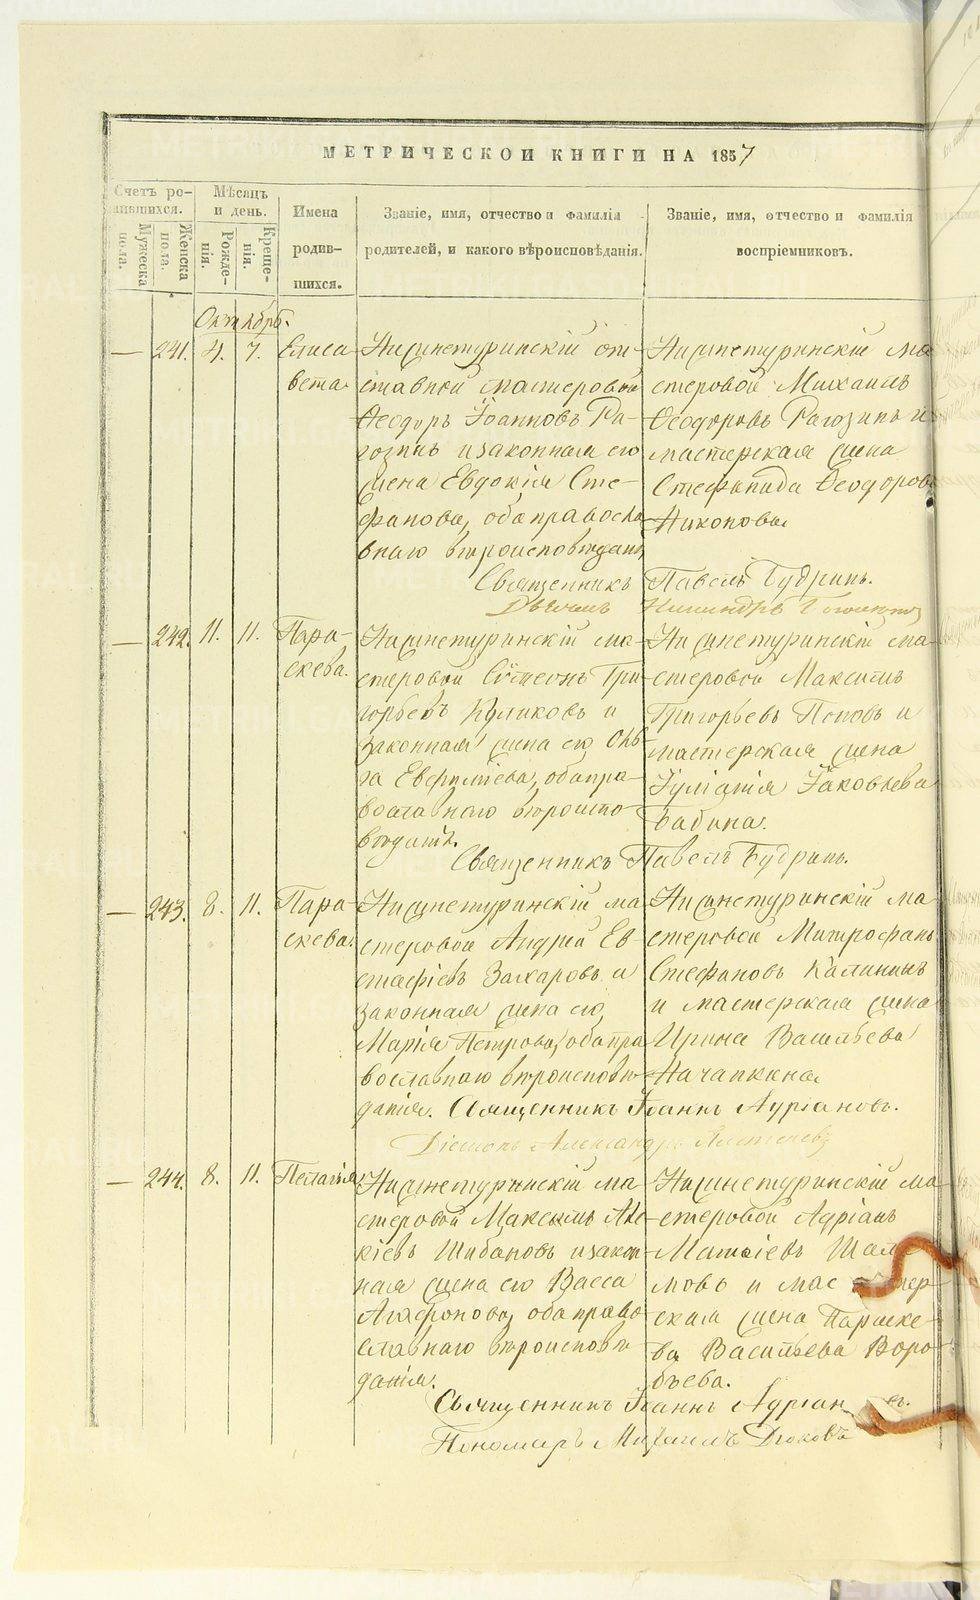 МЕТРИЧЕСКОЙ КНИГИ НА 1857
Счетъ ро-
дившихся.
Мужеска
пола.
Женска
пола.
Мѣсяцъ
и день.
Рожде-
нія.
Креще-
нія.
Имена
родив-
шихся.
Званіе, имя, отчество и фамилія
родителей, и какого вѣроисповѣданія.
Званіе, имя, отчество и фамилія
воспріемниковъ.
Октябрь.
— 241. 4. 7.
Елиса-
вета
Нижнетуринскій от-
ставной мастеровой
Ѳеодоръ Іоанновъ Ра-
гозинъ и законная его
жена Евдокія Сте-
фанова, оба правосла
внаго вѣроисповѣданія
Нижнетуринскій ма
стеровой Михаилъ
Ѳеодоровъ Рагозинъ и
мастерская жена
Стефанида Ѳеодорова
Никонова
Священникъ Павелъ Будринъ.
— 242. 11. 11.
Пара-
скева.
Нижнетуринскій ма-
стеровой Симеонъ Гри-
горьевъ Куликовъ и
законная жена его Оль-
га Евфиміева, оба пра-
вославнаго вѣроиспо-
вѣданія.
Нижнетуринскій ма-
стеровой Максимъ
Григорьевъ Поповъ и
мастерская жена
Іуліанія Іаковлева
Бабина.
Священникъ Павелъ Будринъ.
— 243. 8. 11.
Пара-
скева.
Нижнетуринскій ма-
стеровой Андрей Ев-
стафіевъ Захаровъ и
законная жена его
Марія Петрова, оба пра
вославнаго вѣроисповѣ-
данія.
Нижнетуринскій ма-
стеровой Митрофанъ
Стефановъ Калининъ
и мастерская жена
Ирина Васильева
Священникъ Іоаннъ Адріановъ.
Діаконъ Александръ
— 244. 8. 11.
Пелагія
Нижнетуринскій ма-
стеровой Максимъ
Шибановъ и закон-
ная жена его Васса
Агафонова, оба право-
славнаго вѣроисповѣ-
данія.
Нижнетуринскій ма-
стеровой Адріанъ
и мастер-
ская жена Параске-
ва Васильева Воро-
бьева.
Священникъ Іоаннъ Адріан
Пономарь Михаилъ